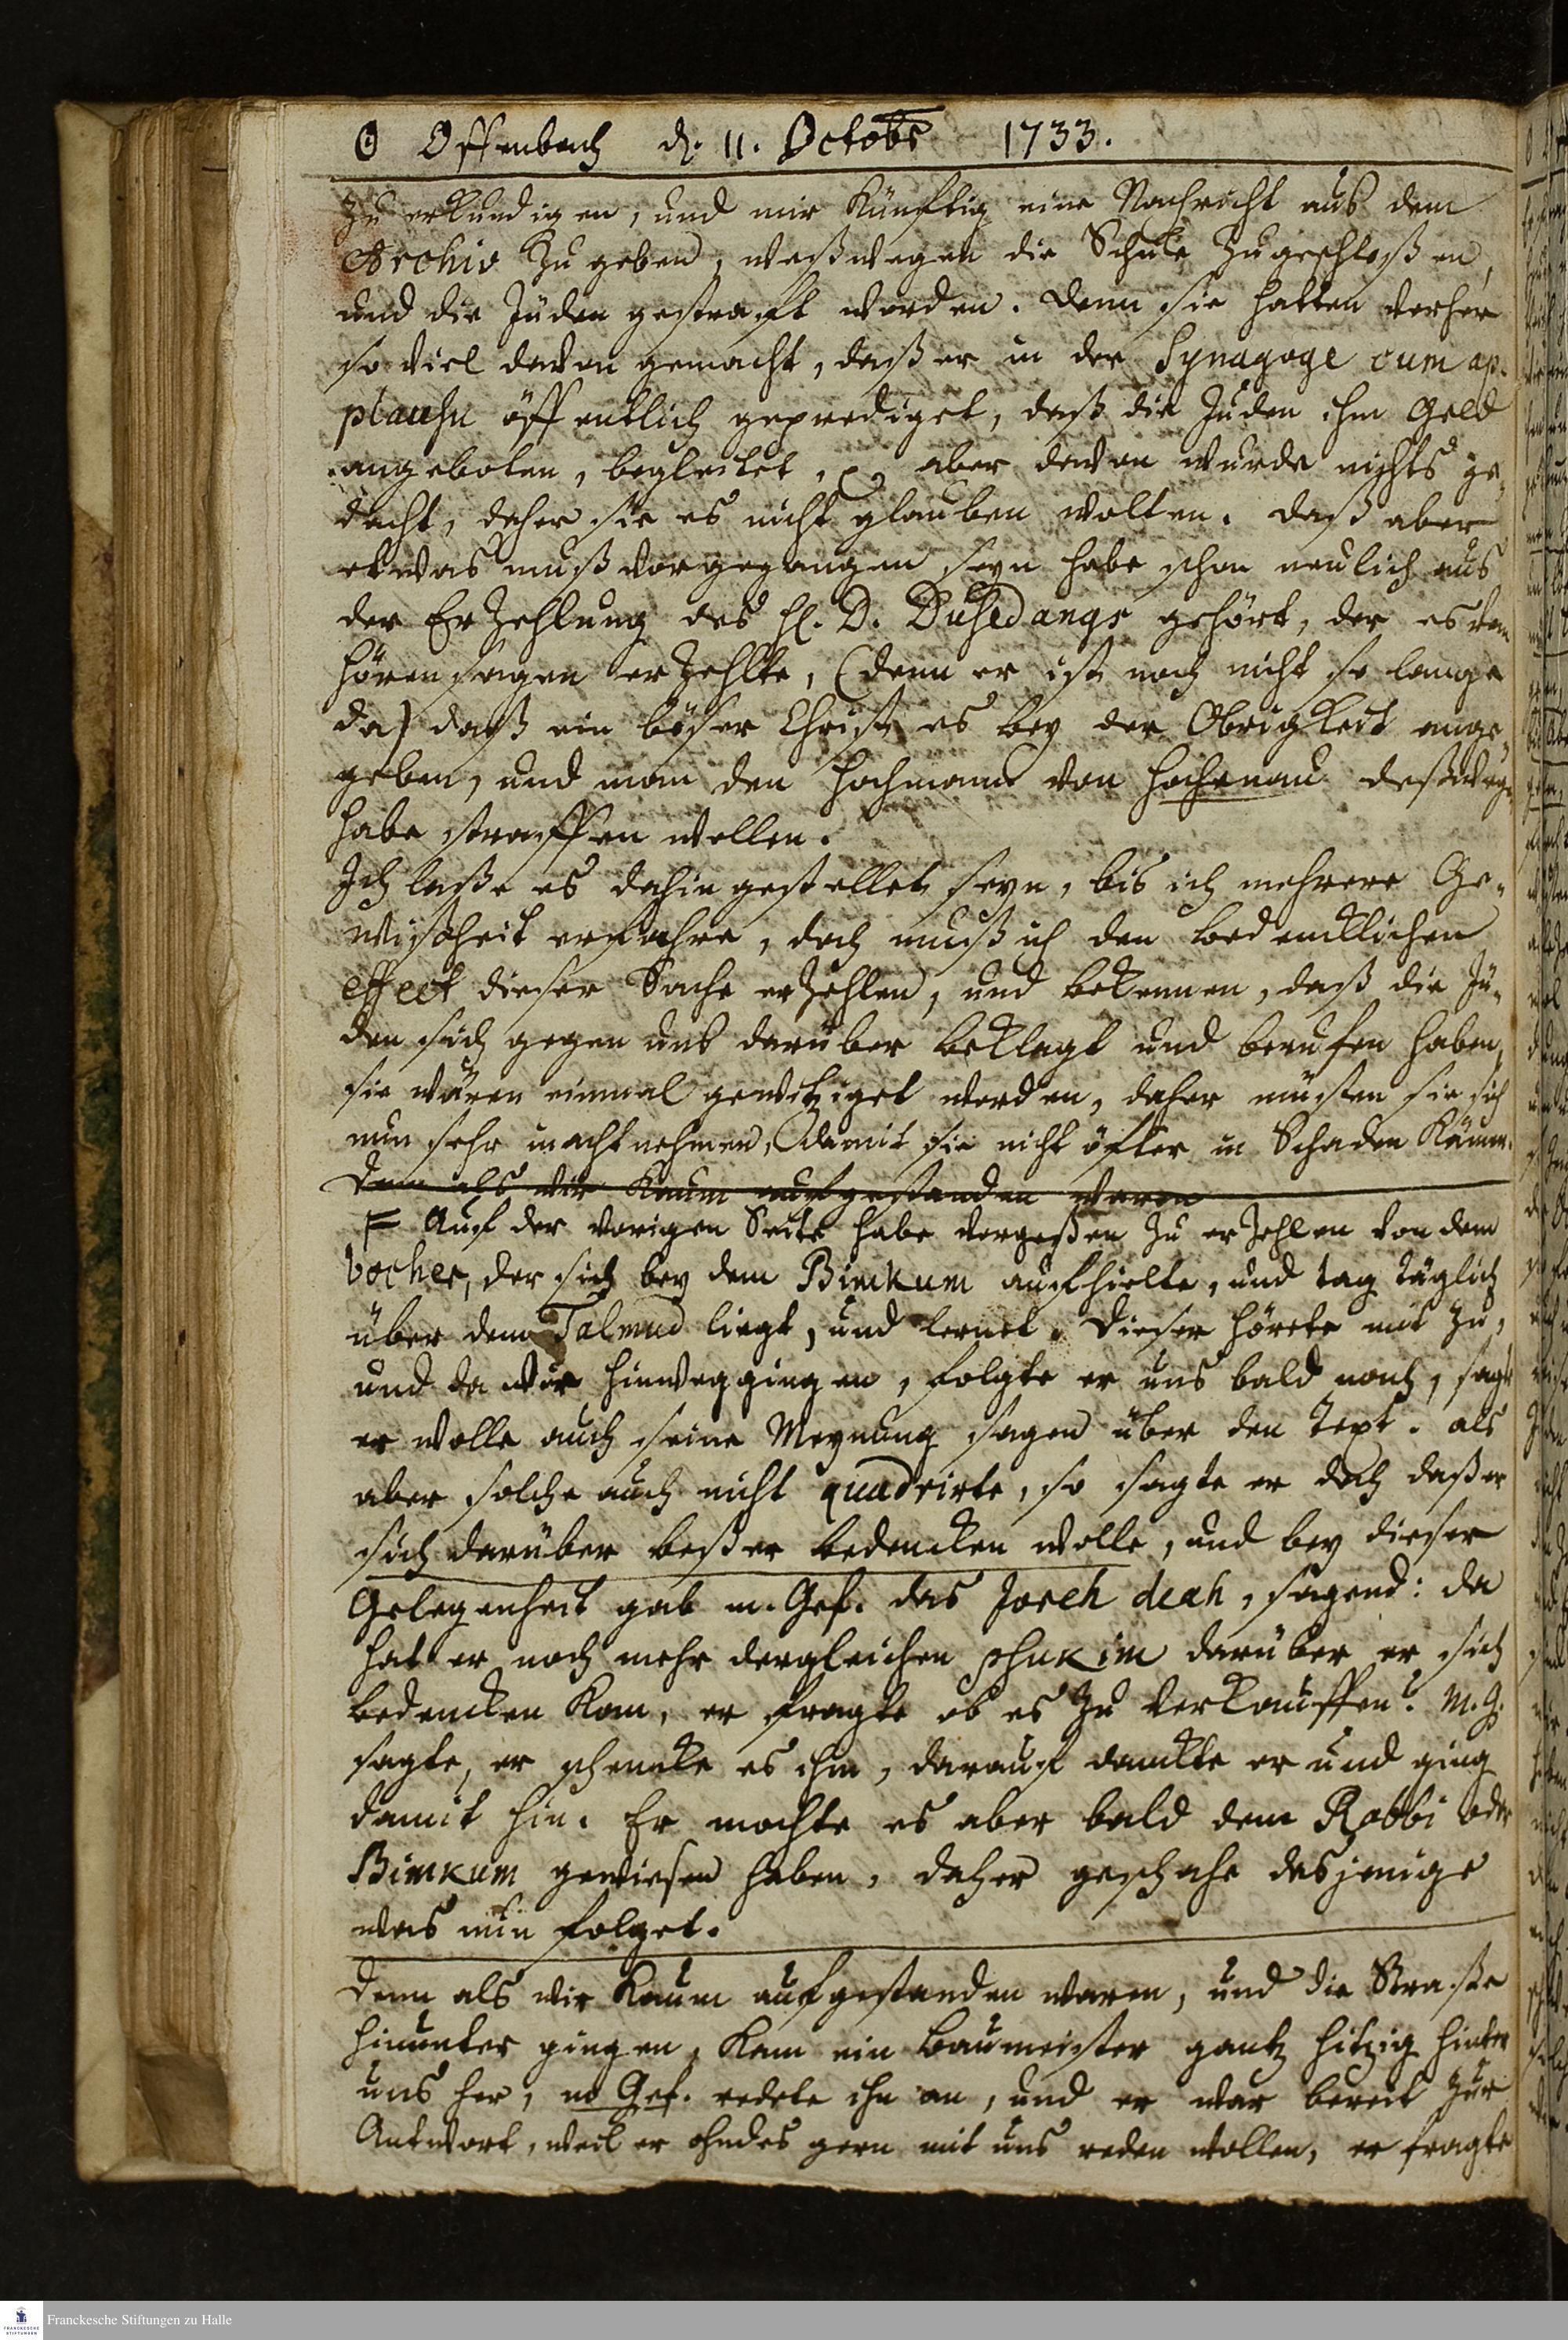 ☉ Offenbach d. 11. Octobr 1733.
zu erkundigen, und mir künftig eine Nachricht aus dem
Archiv zu geben, weßwegen die Schule zugeschloßen,
und die Juden gestraft worden. Denn sie hatten vorher
so viel davon gemacht, daß er in der Synagoge cum ap-
plausu öffentlich geprediget, daß die Juden ihm Geld
angeboten, begleitet, aber davon wurde nichts ge-
dacht, daher sie es nicht glauben wolten. Daß aber
etwas muß vorgegangen seyn habe schon neulich aus
der Erzehlung des H. D. Dusedangs gehört, der es vom
hörensagen erzehlte, (denn er ist noch nicht so lange
da) daß ein böser Christ es bey der Obrigkeit ange-
geben, und man den Hochmann von Hochenau deßwegen
habe straffen wollen.
Ich laße es dahin gestellet seyn, bis ich mehrere Ge-
wißheit erfahre, doch muß ich den bedencklichen
effect dieser Sache erzehlen, und bekennen, daß die Ju-
den sich gegen uns darüber beklagt und berufen haben,
sie wären einmal gewitziget worden, daher müsten sie sich
nun sehr in acht nehmen, damit sie nicht öfter in Schaden kämen.
Denn als wir kaum aufgestanden waren
F Auf der vorigen Seite habe vergeßen zu erzehlen von dem
bocher, der sich bey dem Bimkum aufhielte, und tag täglich
über dem Talmud liegt, und lernet. Dieser hörete mit zu,
und da wir hinweggingen, folgte er uns bald nach, sagte
er wolle auch seine Meynung sagen über den Text. als
aber solche auch nicht quadrirte, so sagte er doch daß er
sich darüber beßer bedencken wolle, und bey dieser
Gelegenheit gab m. Gef. das Joreh deah, sagend: da
hat er noch mehr dergleichen phukim darüber er sich
bedencken kan, er fragte ob es zu verkauffen? M. G.
sagte, er schencke es ihm, darauf danckte er und ging
damit hin. Er mochte es aber bald dem Rabbi oder
Bimkum gewiesen haben, daher geschahe dasjenige
was nun folget.
Denn als wir kaum aufgestanden waren, und die Straße
hinunter gingen, kam ein Baumeister gantz hitzig hinter
uns her, m Gef. redete ihn an, und er war bereit zur
Antwort, weil er ohndes gern mit uns reden wollen, er fragte
Franckesche Stiftungen zu Halle